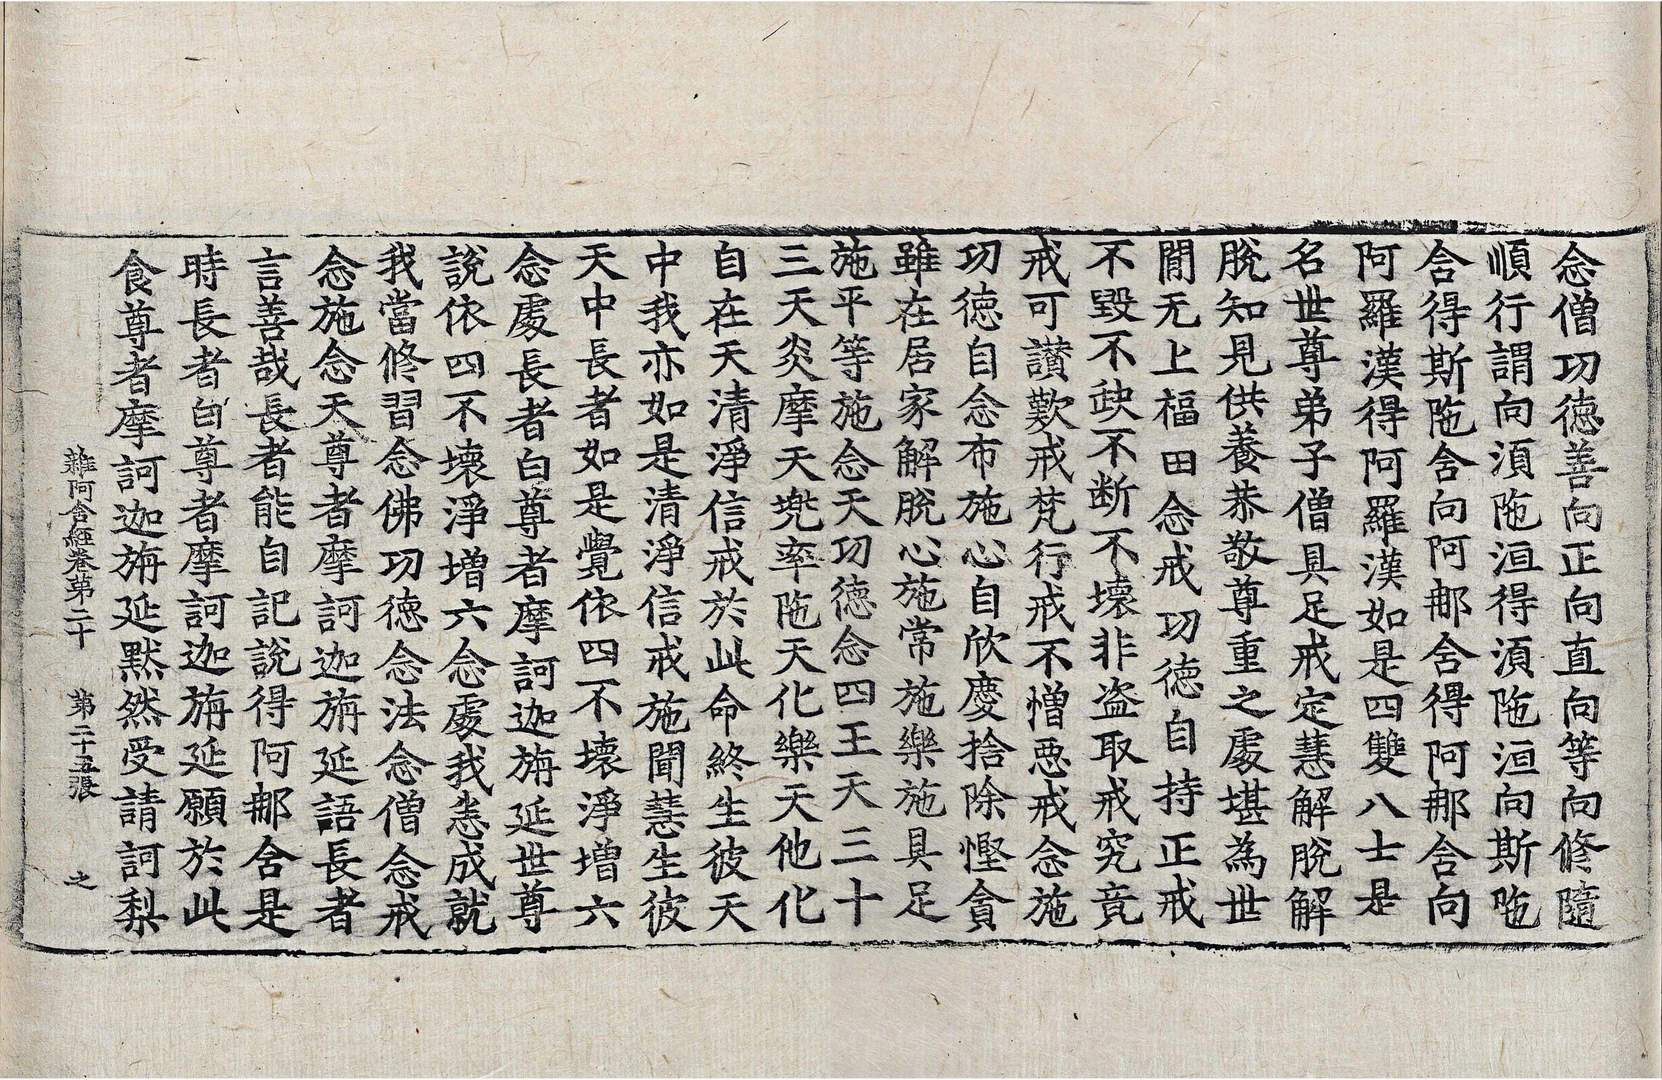 念僧功徳善向正向直向等向修隨
順行謂向湏陁洹得湏陁洹向斯陁
含得斯陁含向阿那含得阿那含向
阿羅漢得阿羅漢如是四雙八士是
名世尊弟子僧具足戒定慧解脫解
脫知見供養恭敬尊重之處堪為世
間无上福田念戒功徳自持正戒
不毀不𡙇不断不壞非盗取戒究竟
戒可讃歎戒梵行戒不憎惡戒念施
功徳自念布施心自欣慶捨除慳貪
雖在居家解脫心施常施樂施具足
施平等施念天功徳念四王天三十
三天炎摩天兜率陁天化樂天他化
自在天清淨信戒於此命終生彼天
中我亦如是清淨信戒施聞慧生彼
天中長者如是覺依四不壞淨增六
念處長者白尊者摩訶迦旃延世尊
說依四不壞淨增六念處我悉成就
我當修習念佛功徳念法念僧念戒
念施念天尊者摩訶迦旃延語長者
言善哉長者能自記說得阿那含是
時長者白尊者摩訶迦旃延願於此
食尊者摩訶迦旃延默然受請訶梨
雜阿含經卷第二十 第二十五張 之